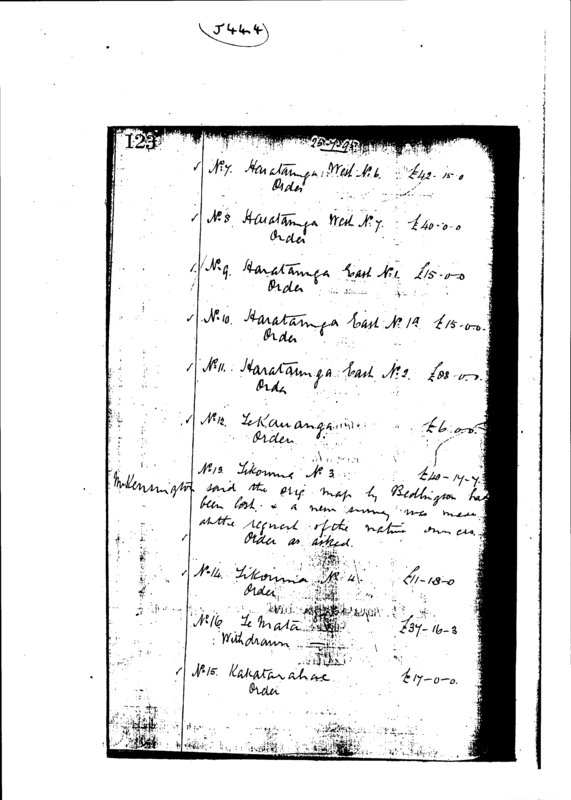 J444
123
25-7-95
No 7. Harataunga West No 6. £42-15-0
Order
No 8 Harataunga West No 7. £40-0-0
Order
No 9. Harataunga East No 1. £15-0-0
Order
No 10. Harataunga East No 1A £15-0-0.
Order
No 11. Harataunga East No 2. £88-0-0.
Order
No 12. Te Kauanga £6.0.0.
Order
No 13. Tikouma No 3 £40-17-7
Mr Kensington said the orig map by Bedlington had
been lost & a new survey was made
at the request of the native owners
Order as asked.
No 14. Tikouma No 4. £11-18-0
Order
No 16 Te Mata £37-16-3
Withdrawn
No 15. Kakatarahae £17-0-0.
Order